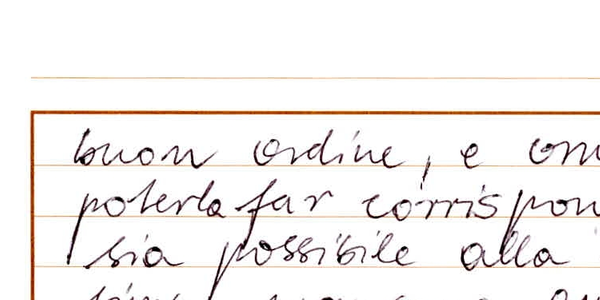 buon ordine, e
poterla far corrispon
sia possibile alla